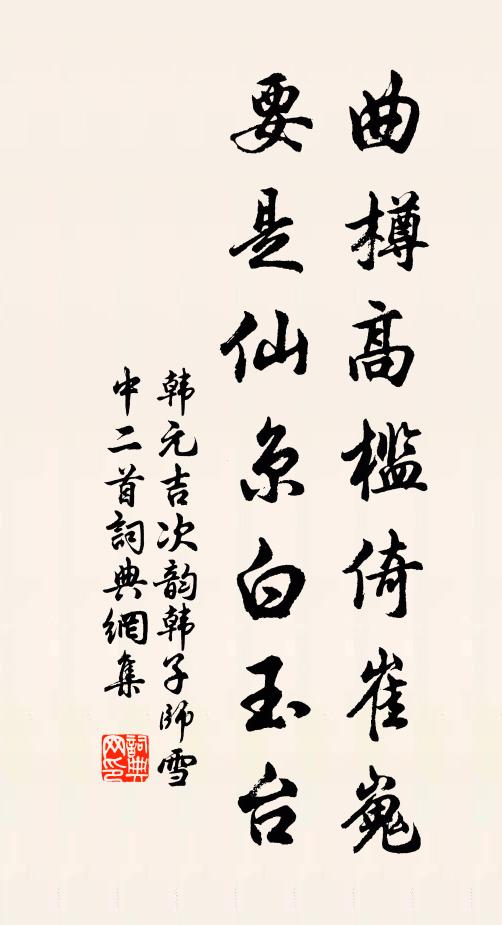 曲樽高槛倚崔嵬
要是仙京白玉台
韩元吉次韵韩子师雪
中二首詞典網集
詞典
网印